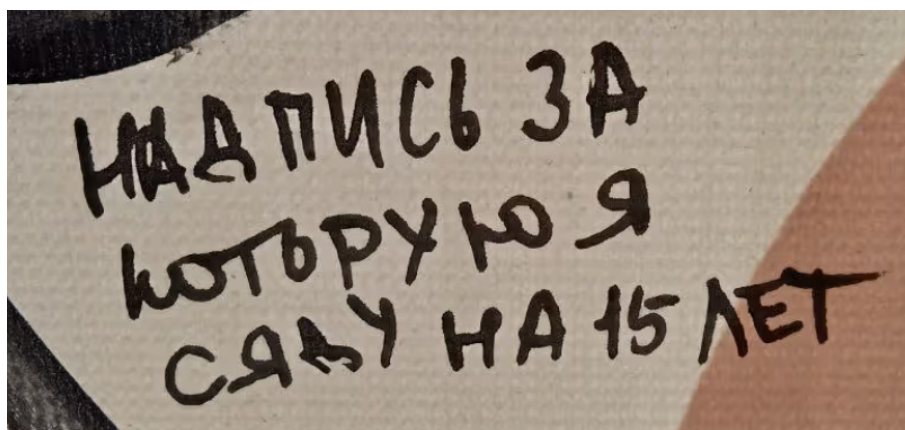 НАДПИСЬ ЗА
КОТОРУЮ Я
СЯДУ НА 15 ЛЕТ